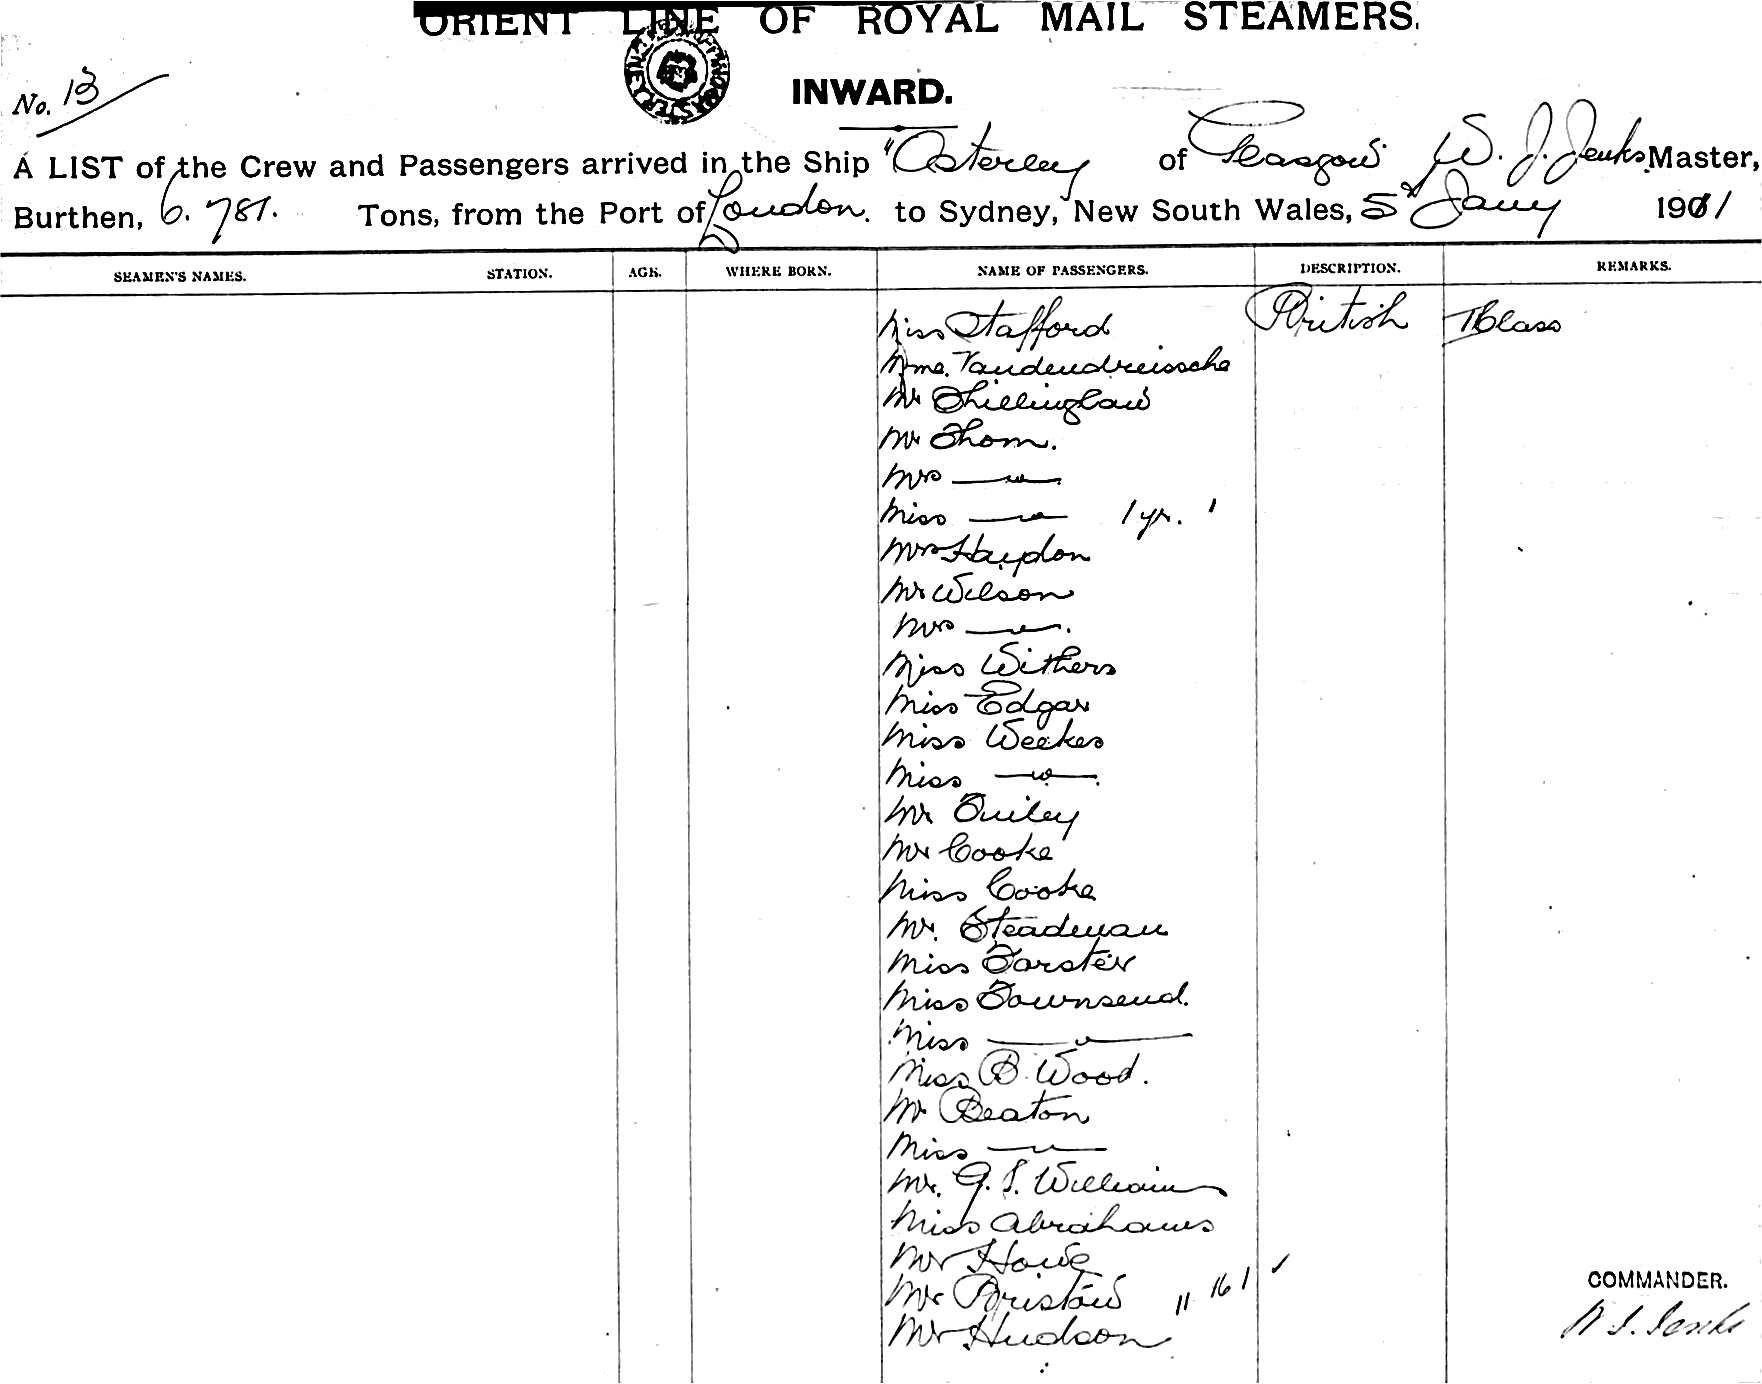 ORIENT LINE OF ROYAL MAIL STEAMERS.
INWARD.
No. 13
A LIST of the Crew and Passengers arrived in the Ship "Osterley of Glasgow W. J. Jenks Master,
Burthen, 6.781. Tons, from the Port of London. to Sydney, New South Wales, 5th Jany 1911
SEAMEN'S NAMES. STATION. AGE. WHERE BORN. NAME OF PASSENGERS. DESCRIPTION. REMARKS.
Miss Stafford British Class
Mme. Vandendreissche
Mr Shillinglaw
Mr Thom.
Mrs — " —
Miss — " — 1 yr. 1
Mrs Haydon
Mr Wilson
Mrs — " —.
Miss Withers
Miss Edgar
Miss Weekes
Miss — " —.
Mr
Mr Cooke
Miss Cooke
Mr. Steadman
Miss
Miss Townsend.
Miss — " —
Miss B. Wood.
Mr Beaton
Miss — " —
Mr. G. S. Williams
Miss Abrahams
Mr Howe
Mr Bristow 11 16 1
Mr Hudson
COMMANDER.
W. J. Jenks